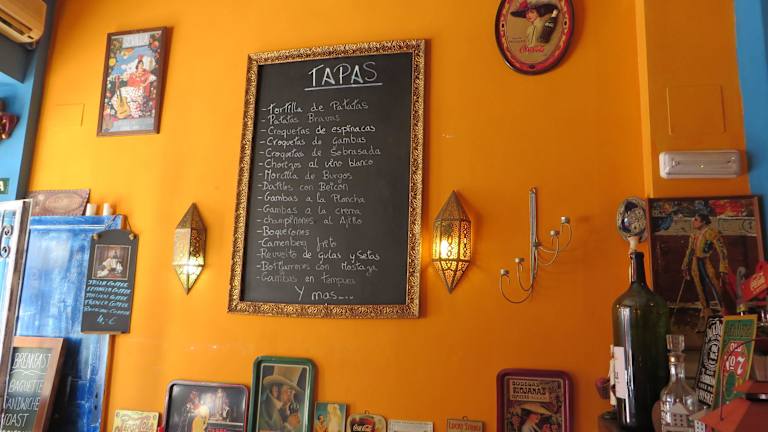 TAPAS
-Tortilla de Patatas
-Patatas Bravas
-Croquetas de espinacas
-Croquetas de Gambas
-Croquetas de Sobrasada
-Chorizos al vino blanco
-Morcilla de Burgos
-Datiles con Beicon
-Gambas a la Plancha
-Gambas a la crema
-champiñones al Ajillo
-Boquerones
-Camenbert frito
-Revuelto de gulas y setas
-Gambas en tempura
Y mas....
Coca-Cola
IRISH COFFEE
ITALIAN COFFEE
FRENCH COFFEE
4,-€
BREAKFAST
BAGUETTE
SANDWICHE
TOAST
BODEGAS
RIOJANAS
Coca-Cola
LUCKY STRIKE
OLD
No 7